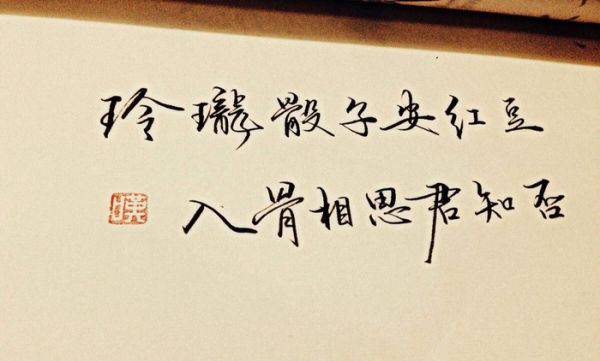 玲瓏骰子安红豆
入骨相思君知否